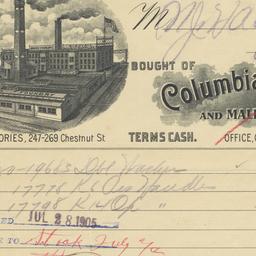 M
BOUGHT OF
Columbia
AND MAL
ORIES, 247-269 Chestnut St
TERMS CASH.
OFFICE,
19663 Dbl
17778 R6 Handle
17798 R 14 Op "
ED JUL 28 1905
E TO Stock July